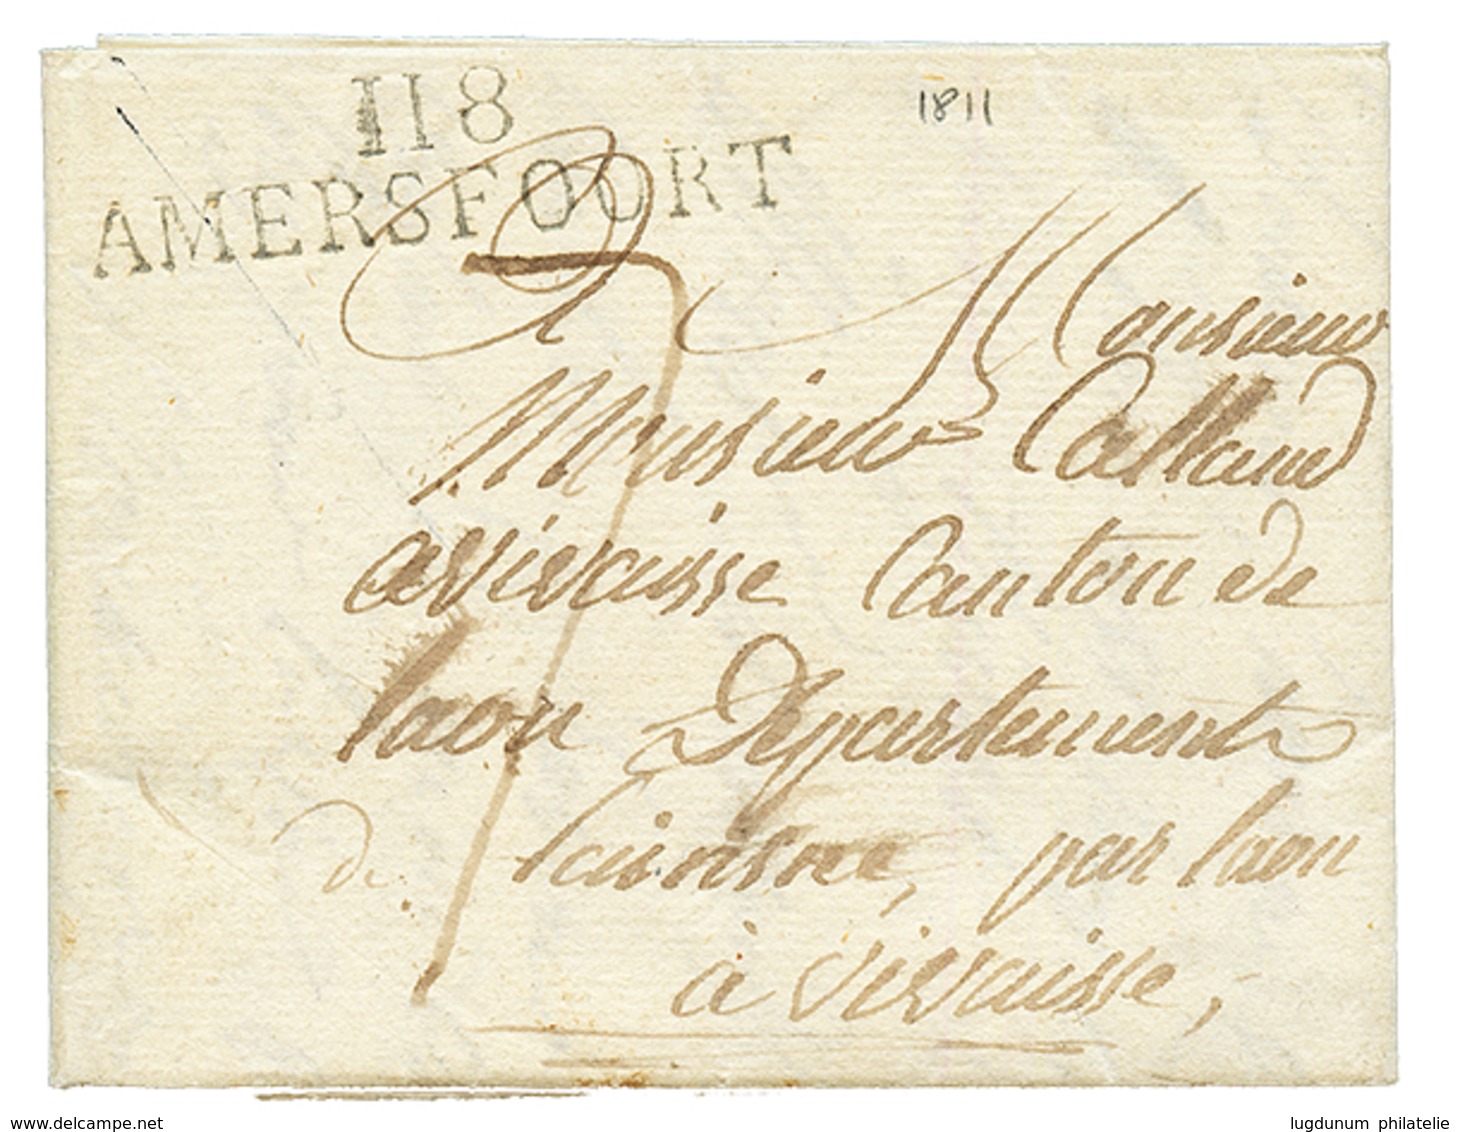 118
AMERSFOORT
1811
Monsieur
Monsieur Calland
a vivaisse Canton de
laon Département
de laisne, par laon
à vivaisse,
www.delcampe.net
lugdunum philatelie